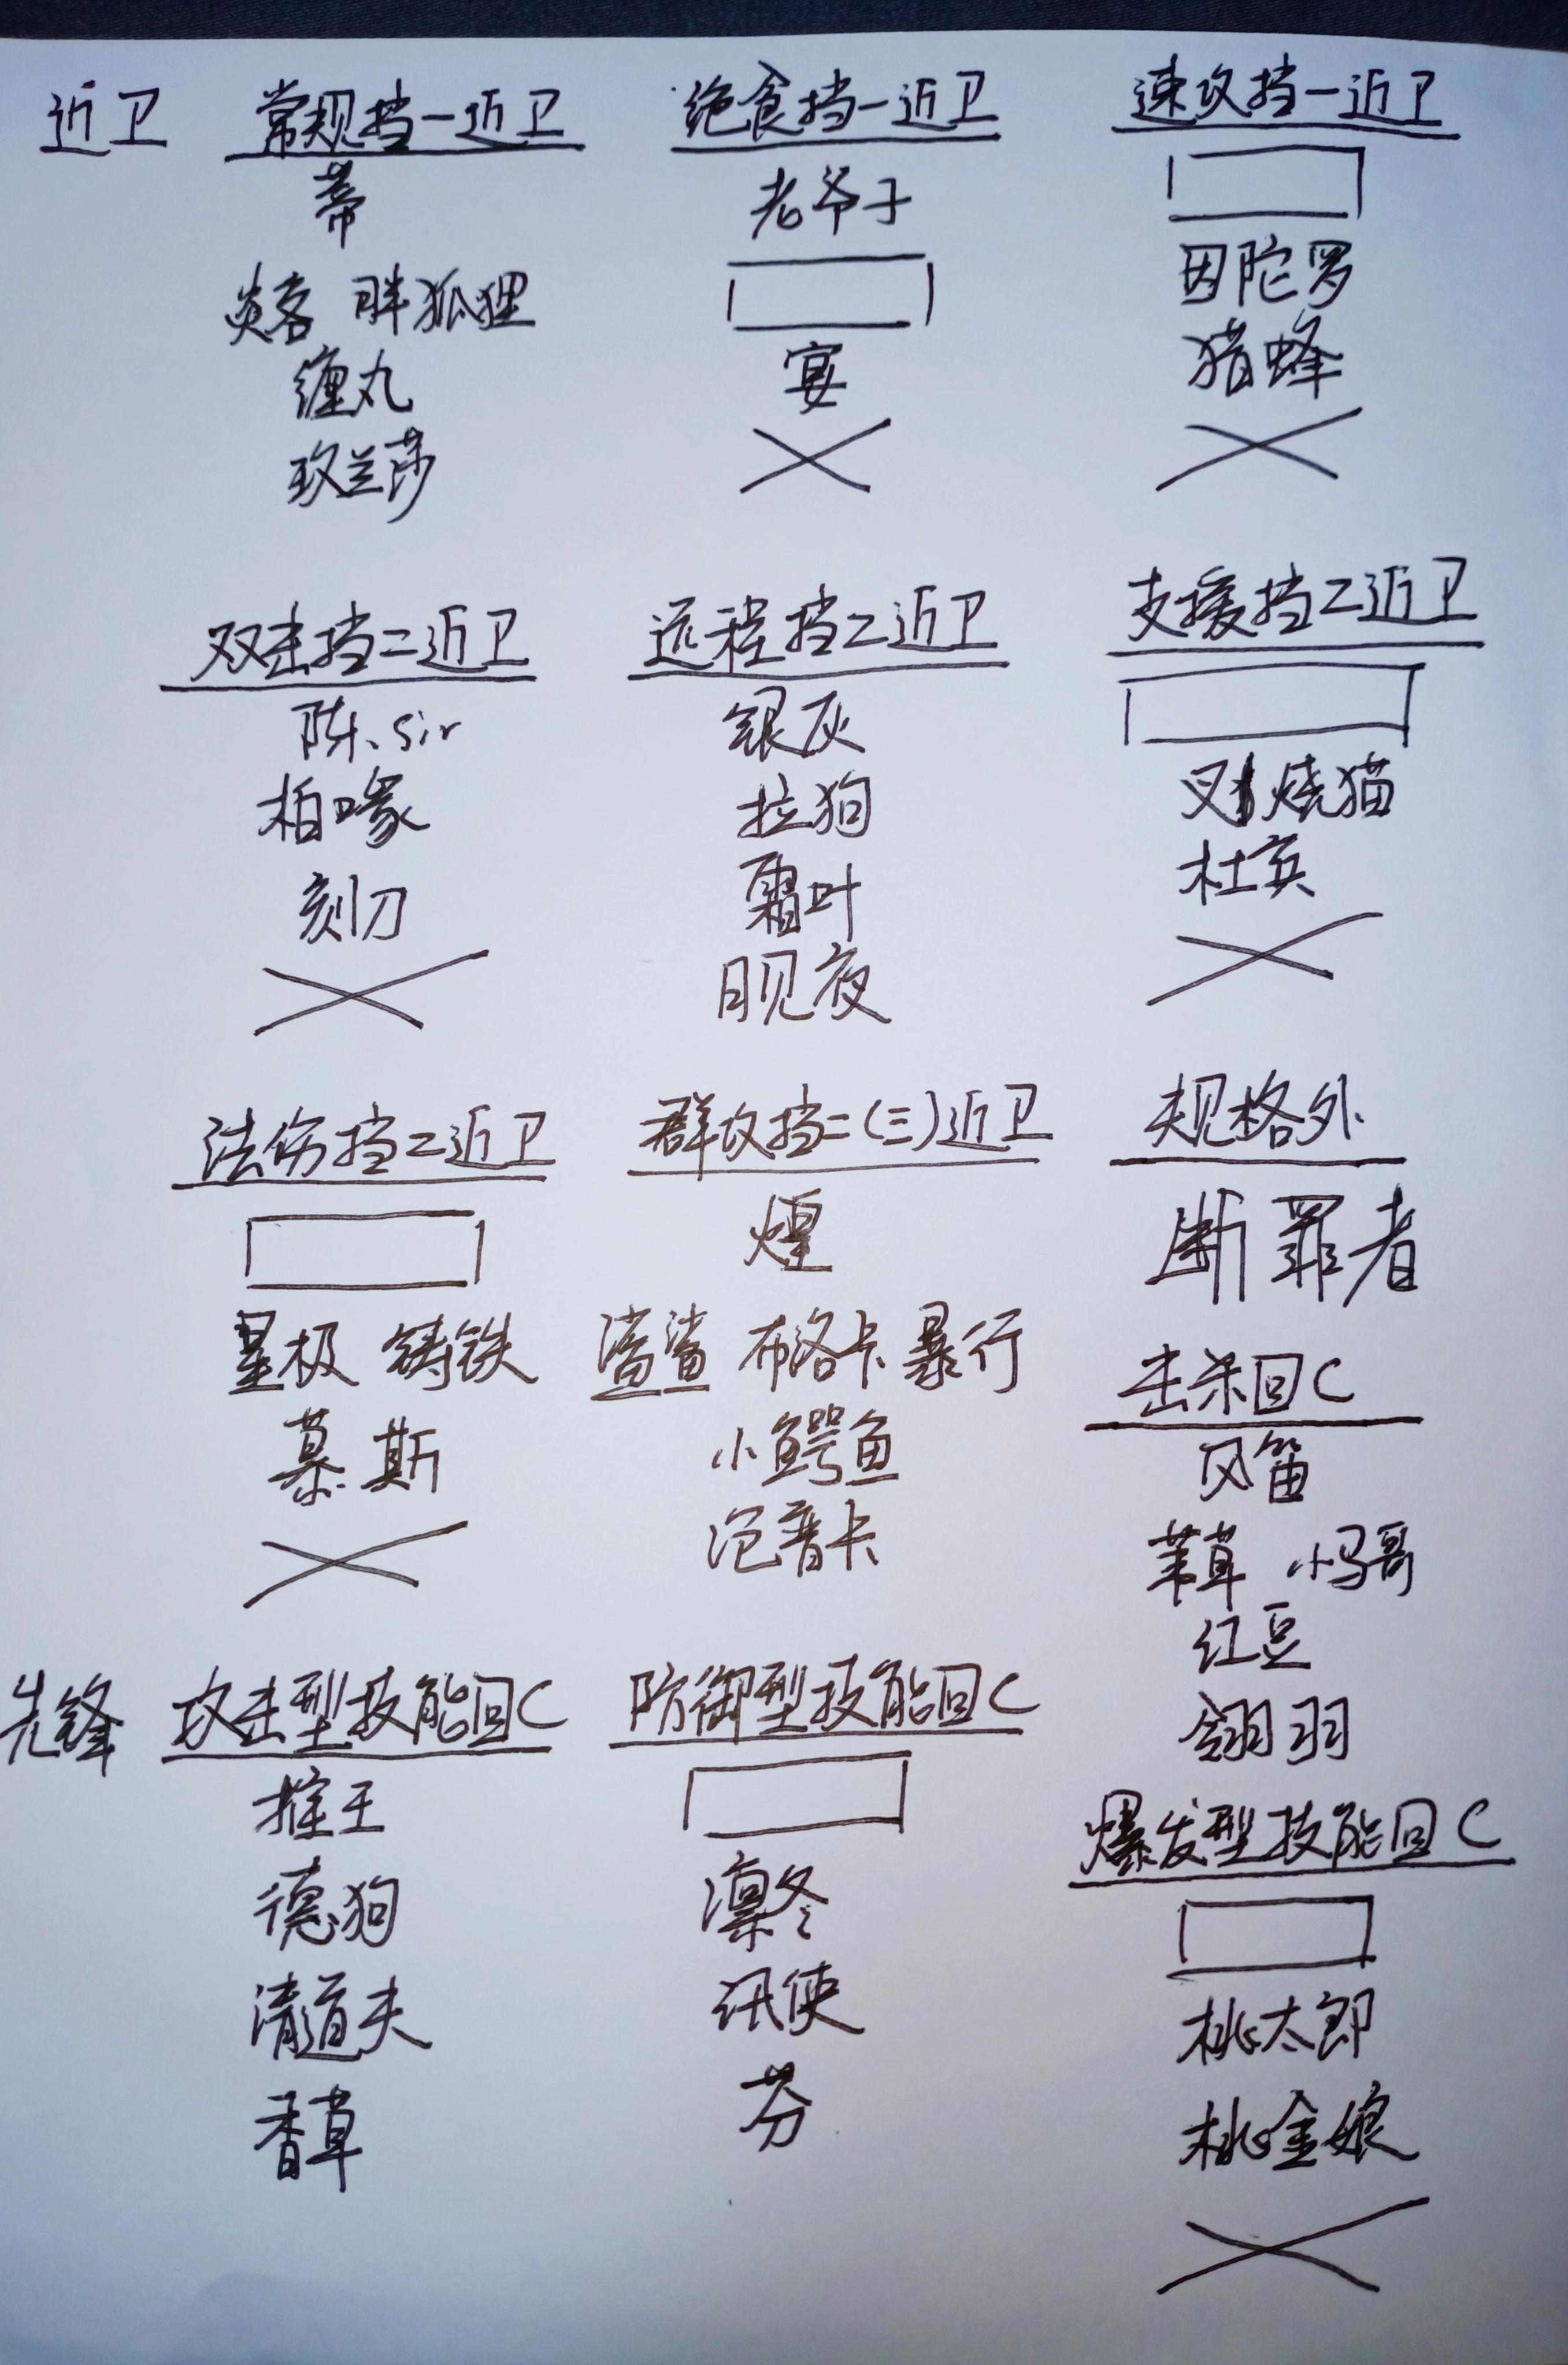 近卫 常规挡一近卫
蒂
炎客 胖狐狸
缠丸
玫兰莎
绝食挡一近卫
老爷子
宴
速攻挡一近卫
因陀罗
猎蜂
双击挡二近卫
陈.sir
柏喙
刻刀
远程挡二近卫
银灰
拉狗
霜叶
月见夜
支援挡二近卫
叉烧猫
杜宾
法伤挡二近卫
星极 铸铁
慕斯
群攻挡二(三)近卫
煌
鲨鲨 布洛卡 暴行
小鳄鱼
泡普卡
规格外
断罪者
击杀回C
风笛
苇草 小马哥
红豆
翎羽
先锋 攻击型技能回C
推王
德狗
清道夫
香草
防御型技能回C
凛冬
讯使
芬
爆发型技能回C
桃太郎
桃金娘